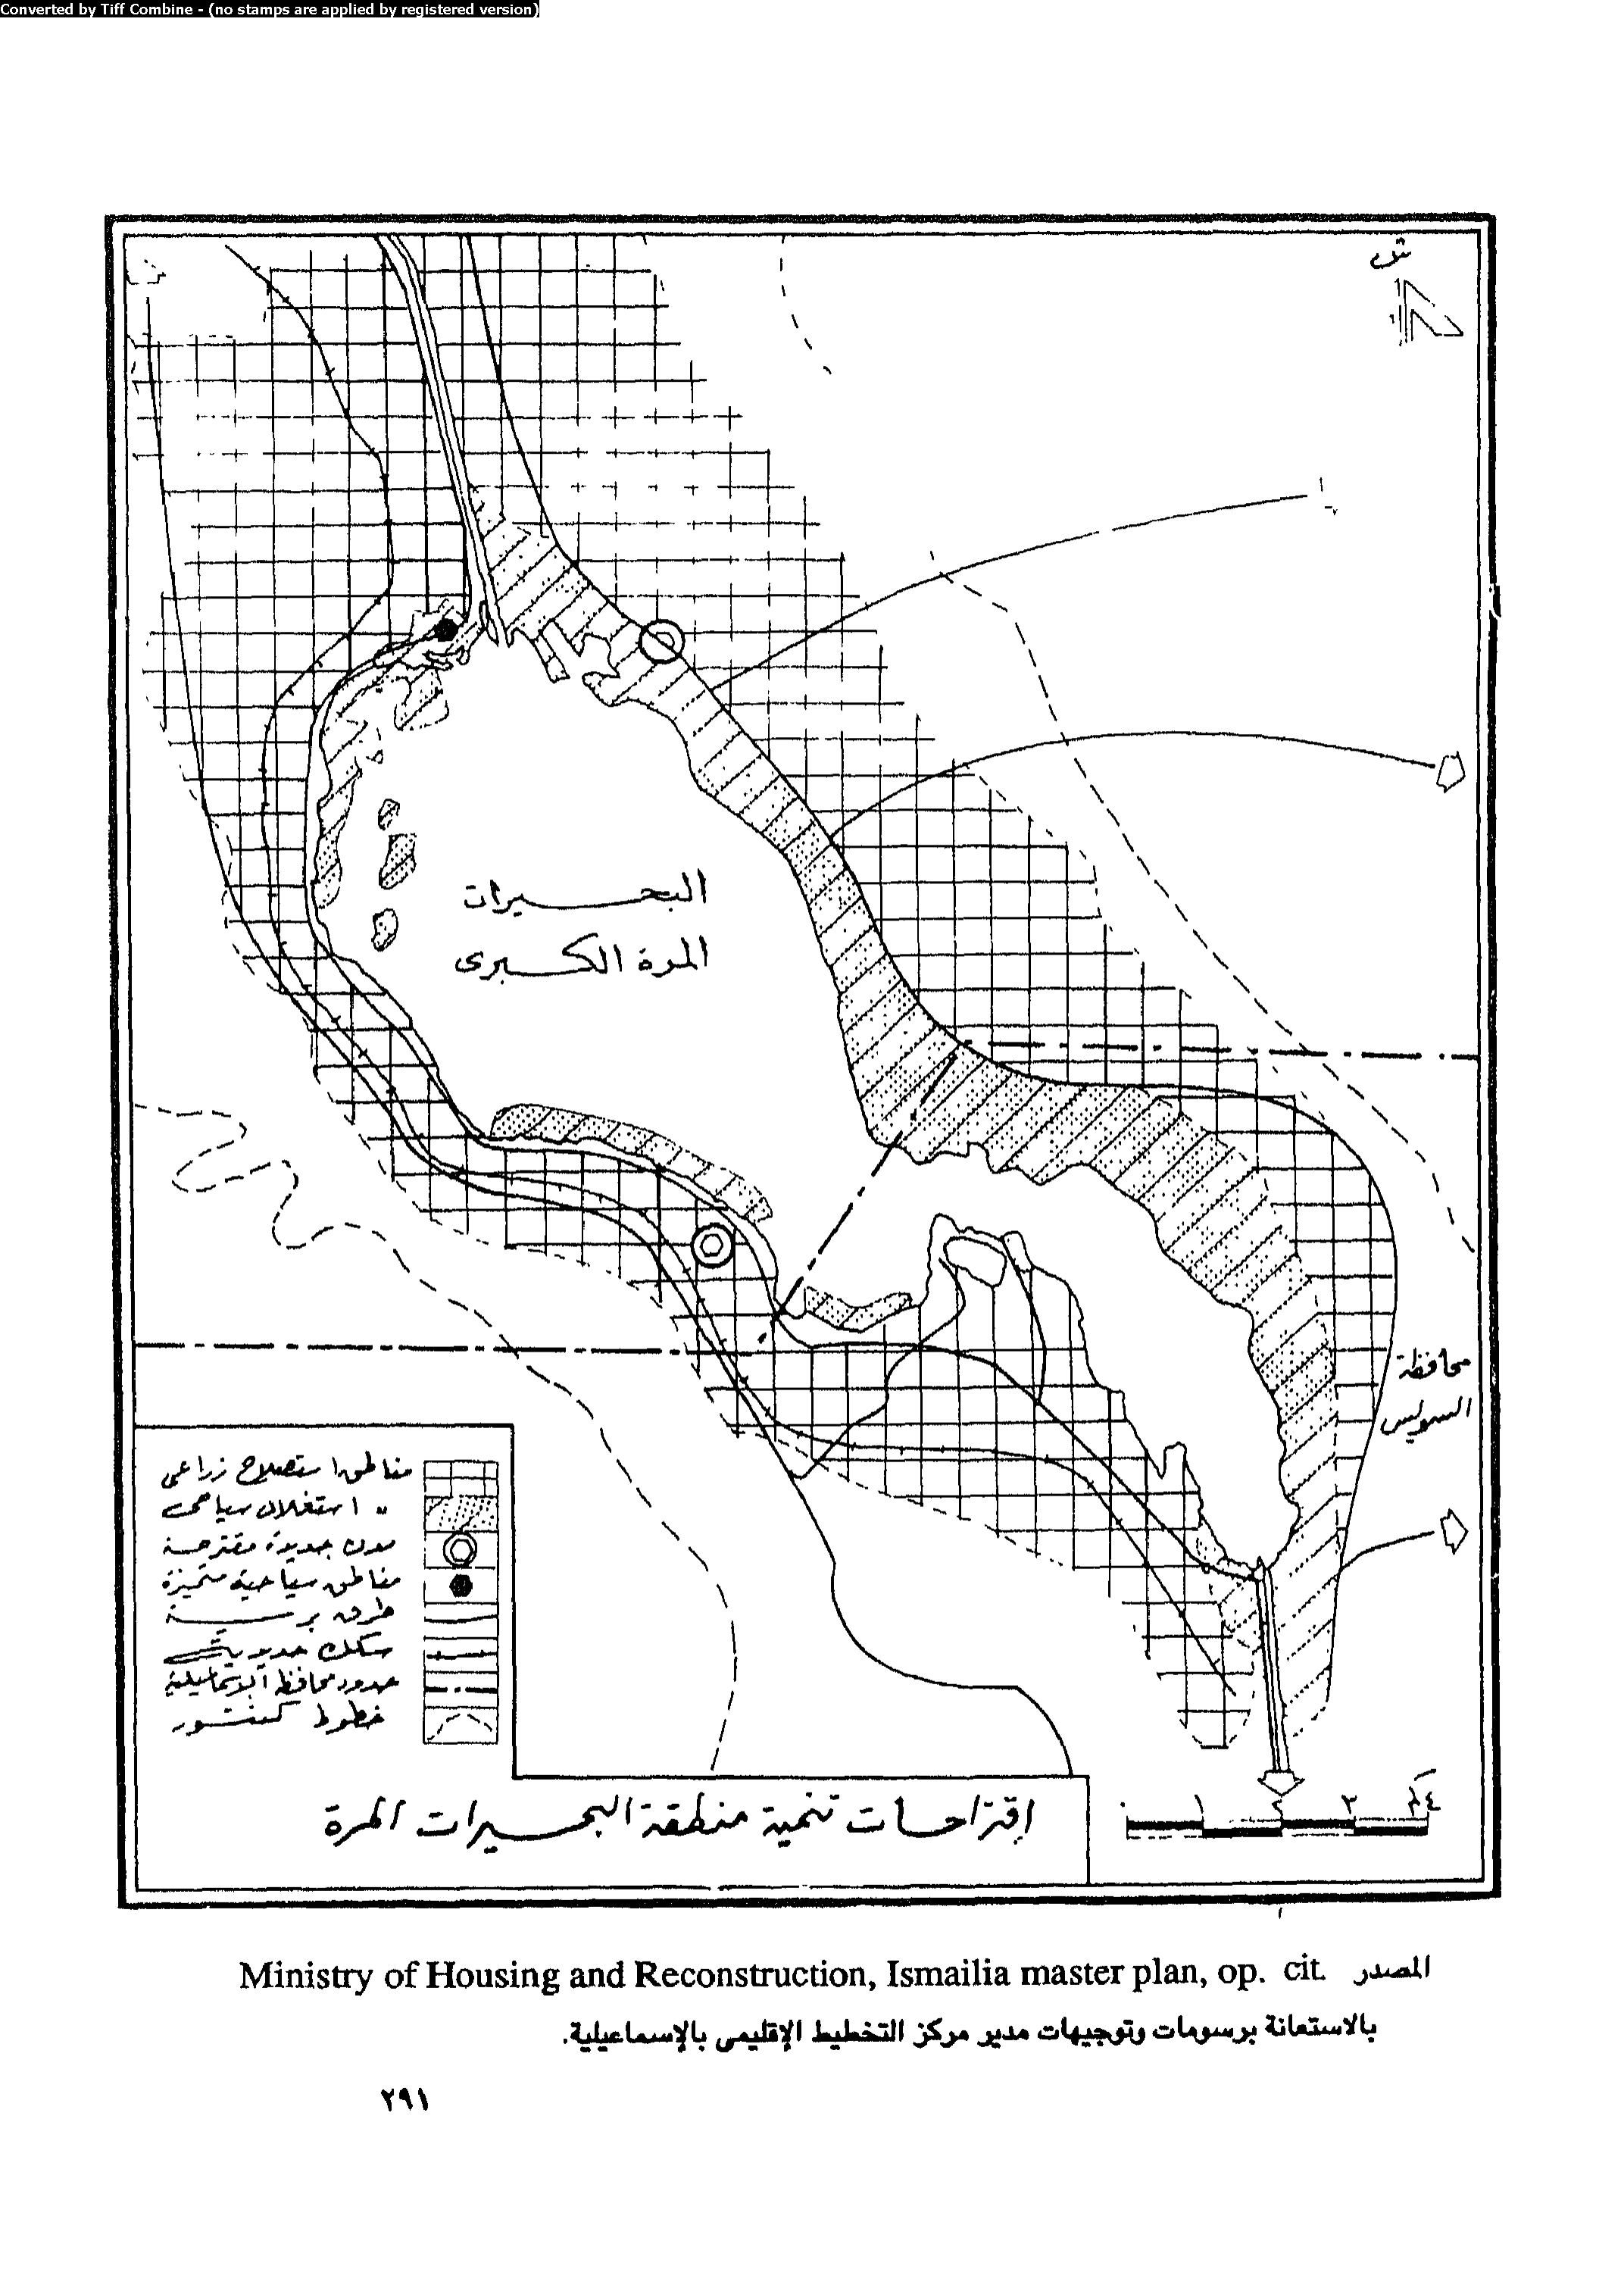 Converted by Tiff Combine - (no stamps are applied by registered version)
ش
البحيرات
المرة الكبرى
محافظة
السويس
مناطق استصلاح زراعى
" استغلال سياحى
مدن جديدة مقترحة
مناطق سياحية متميزة
طرق برية
سكك حديدية
حدود محافظة الإسماعيلية
خطوط كنتور
إقتراحات تنمية منطقة البحيرات المرة
٠ ١ ٢ ٣ ٤كم
المصدر Ministry of Housing and Reconstruction, Ismailia master plan, op. cit.
بالاستعانة برسومات وتوجيهات مدير مركز التخطيط الإقليمى بالإسماعيلية.
٢٩١